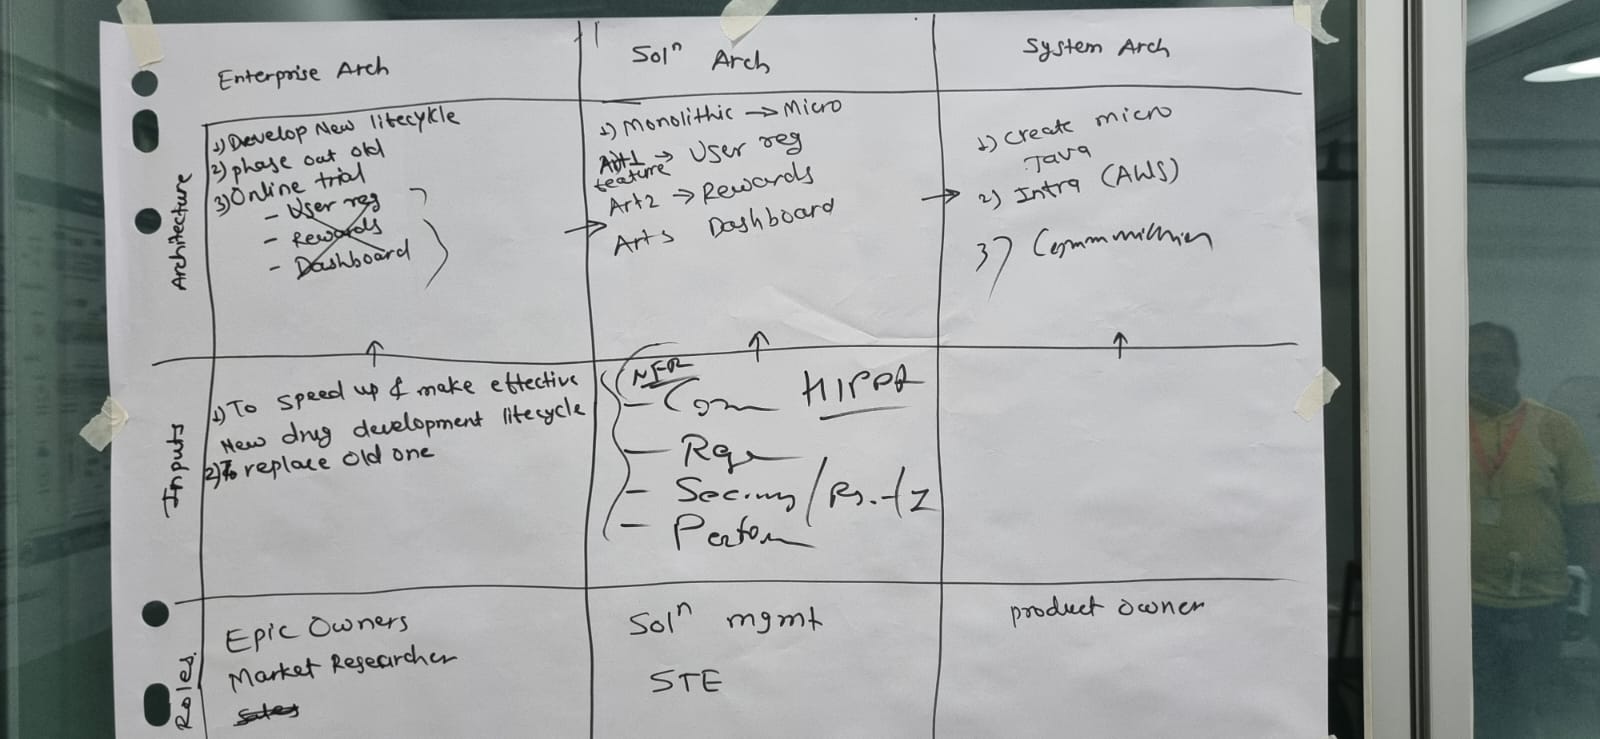 Enterprise Arch
Solⁿ Arch
System Arch
Architecture
1) Develop New litecykle
2) phase out old
3) Online trial
- User reg
- Rewards
- Dashboard
1) Monolithic → Micro
Art1 → User reg
feature
Art2 → Rewards
Art3 Dashboard
1) Create micro
Java
2) Intra (AWS)
3)
Inputs
1) To speed up & make effective
New drug development litecycle
2) To replace old one
NFR
- Com HIPPA
-
- Security /
- Perfom
Roles.
Epic Owners
Market Researcher
Sales
Solⁿ mgmt
STE
product owner